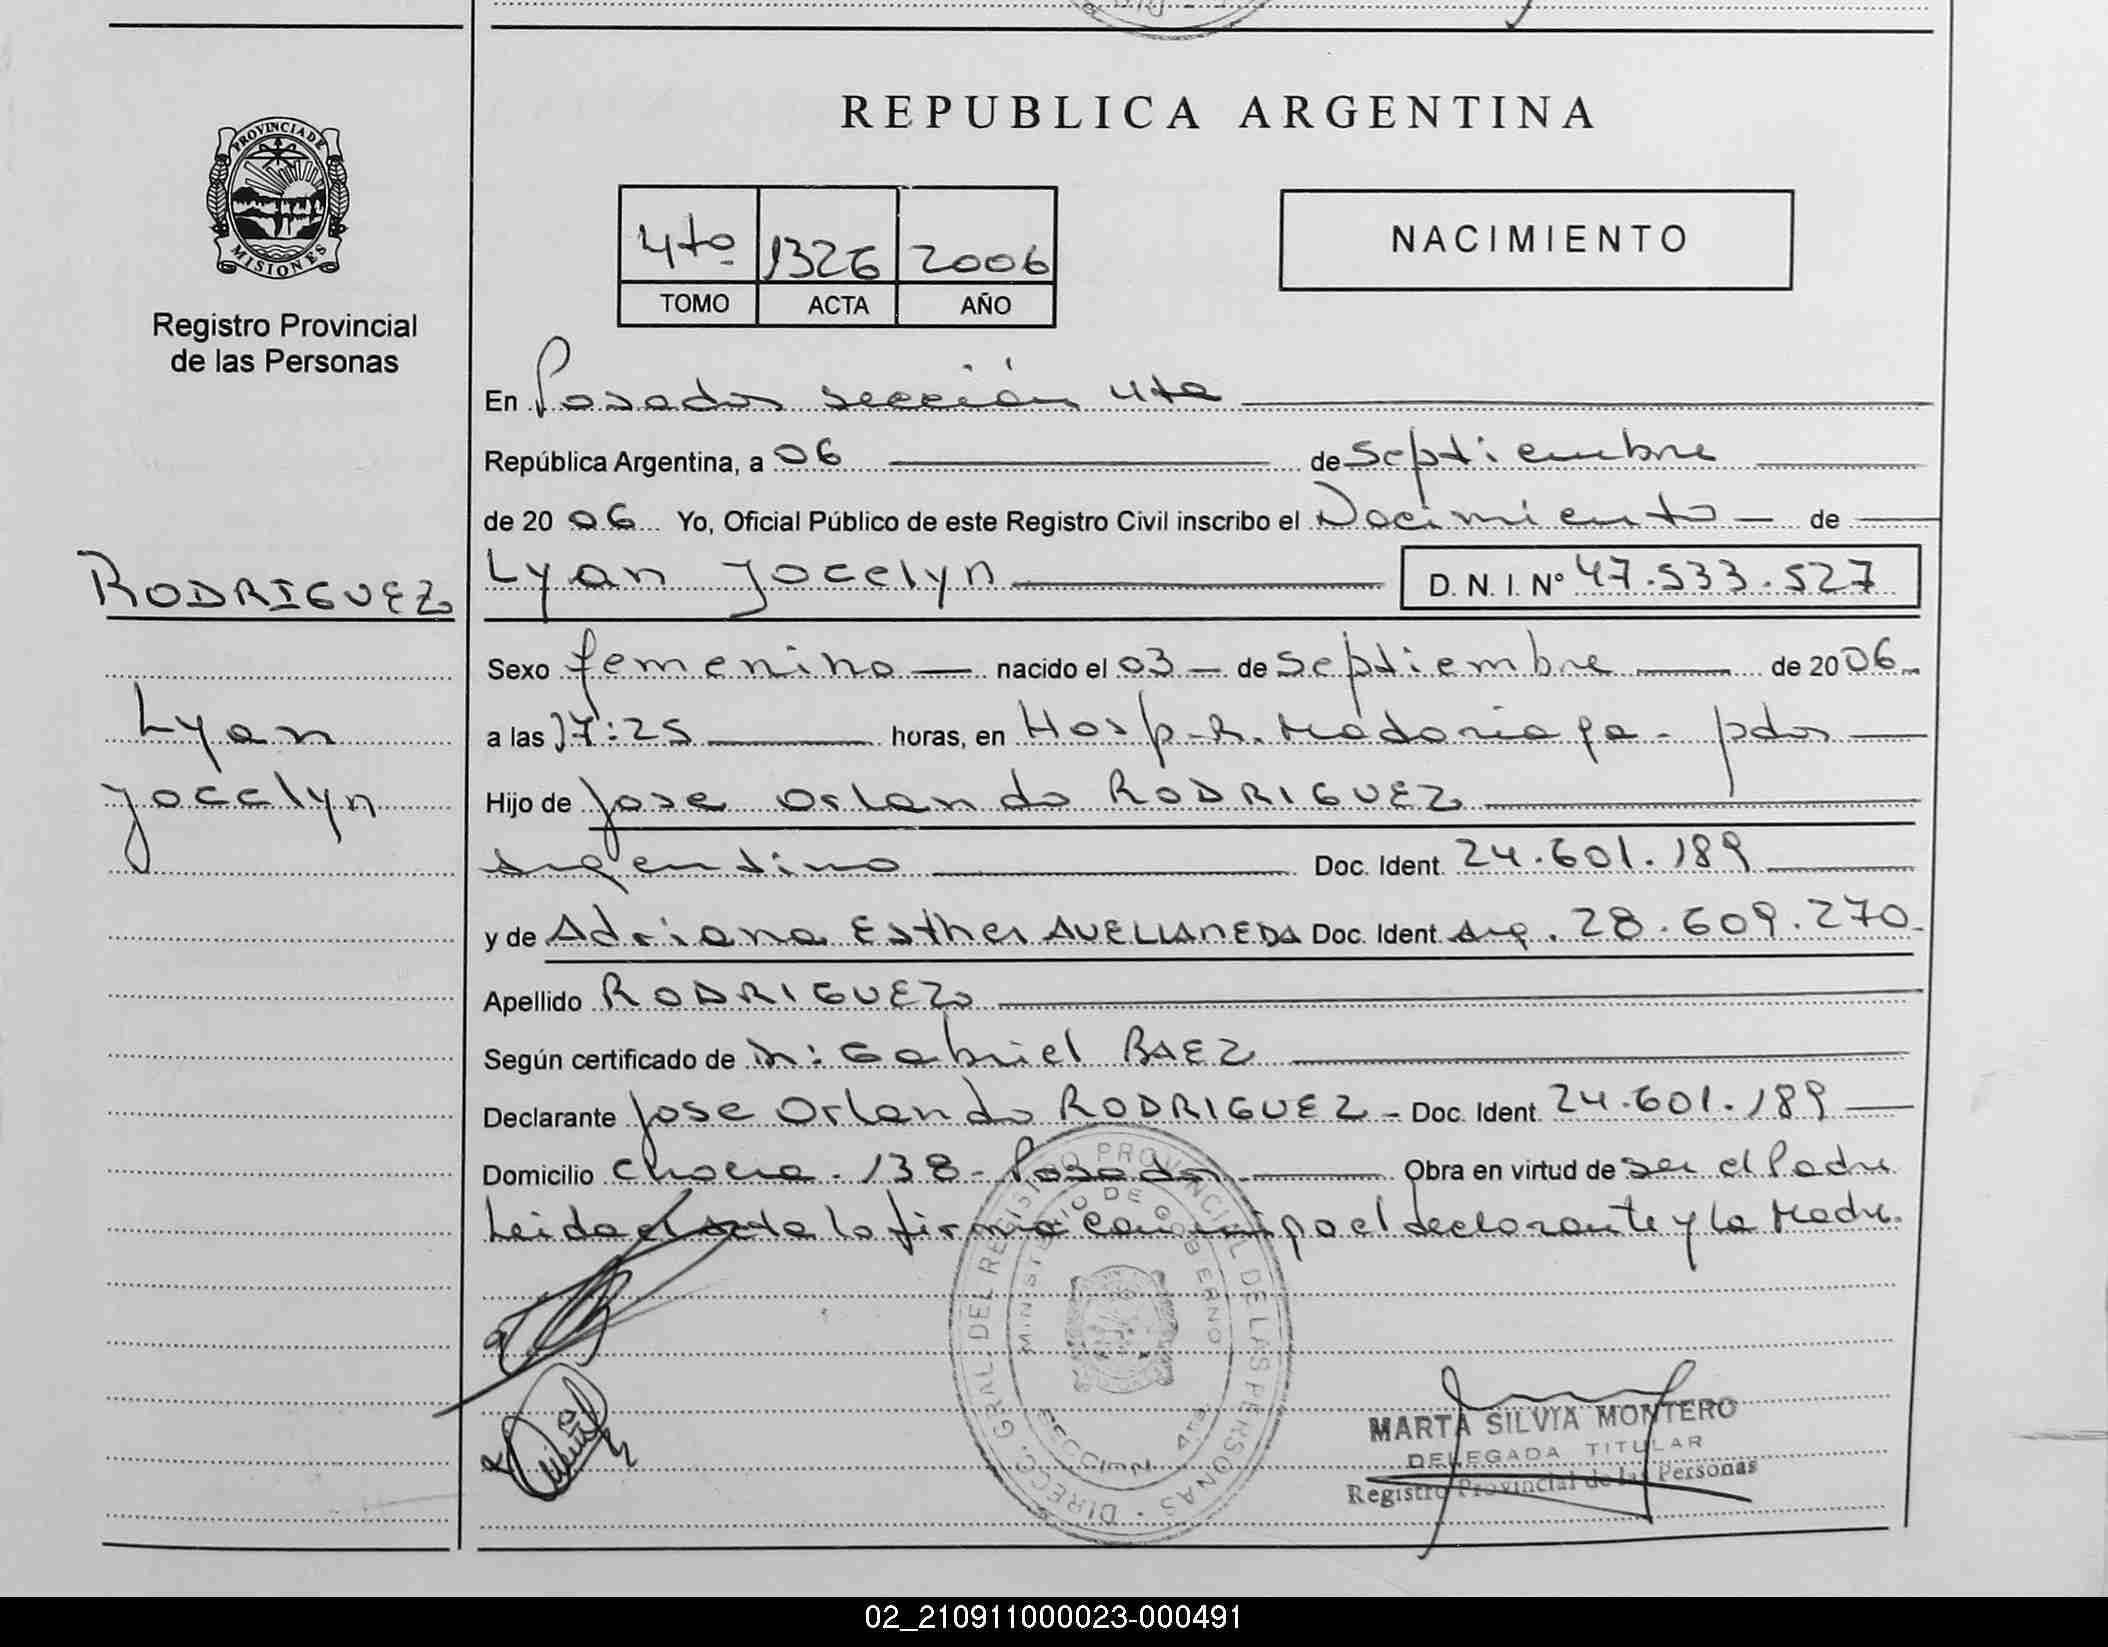 REPUBLICA ARGENTINA
PROVINCIA DE
MISIONES
Registro Provincial
de las Personas
4to 1326 2006
TOMO ACTA AÑO
NACIMIENTO
En Posadas sección 4ta
República Argentina, a 06 de septiembre
de 2006 Yo, Oficial Público de este Registro Civil inscribo el Nacimiento de
RODRIGUEZ
Lyan Jocelyn
Lyan Jocelyn D. N. I. Nº 47.533.527
Sexo femenino nacido el 03 de septiembre de 2006
a las 17:25 horas, en Hosp. R. Madariaga - pdas
Hijo de Jose Orlando RODRIGUEZ
argentino Doc. Ident. 24.601.189
y de Adriana Esther AVELLANEDA Doc. Ident. Arg. 28.609.270
Apellido RODRIGUEZ
Según certificado de Dr: Gabriel BAEZ
Declarante Jose Orlando RODRIGUEZ - Doc. Ident. 24.601.189
Domicilio 138 - Posadas Obra en virtud de ser el Padre
Leida el acta la firma conmigo el declarante y la Madre.
DIRECC. GRAL. DEL REGISTRO PROVINCIAL DE LAS PERSONAS
MINISTERIO DE GOBIERNO
SECCION 4ta
MARTA SILVIA MONTERO
DELEGADA TITULAR
Registro Provincial de las Personas
02_210911000023-000491